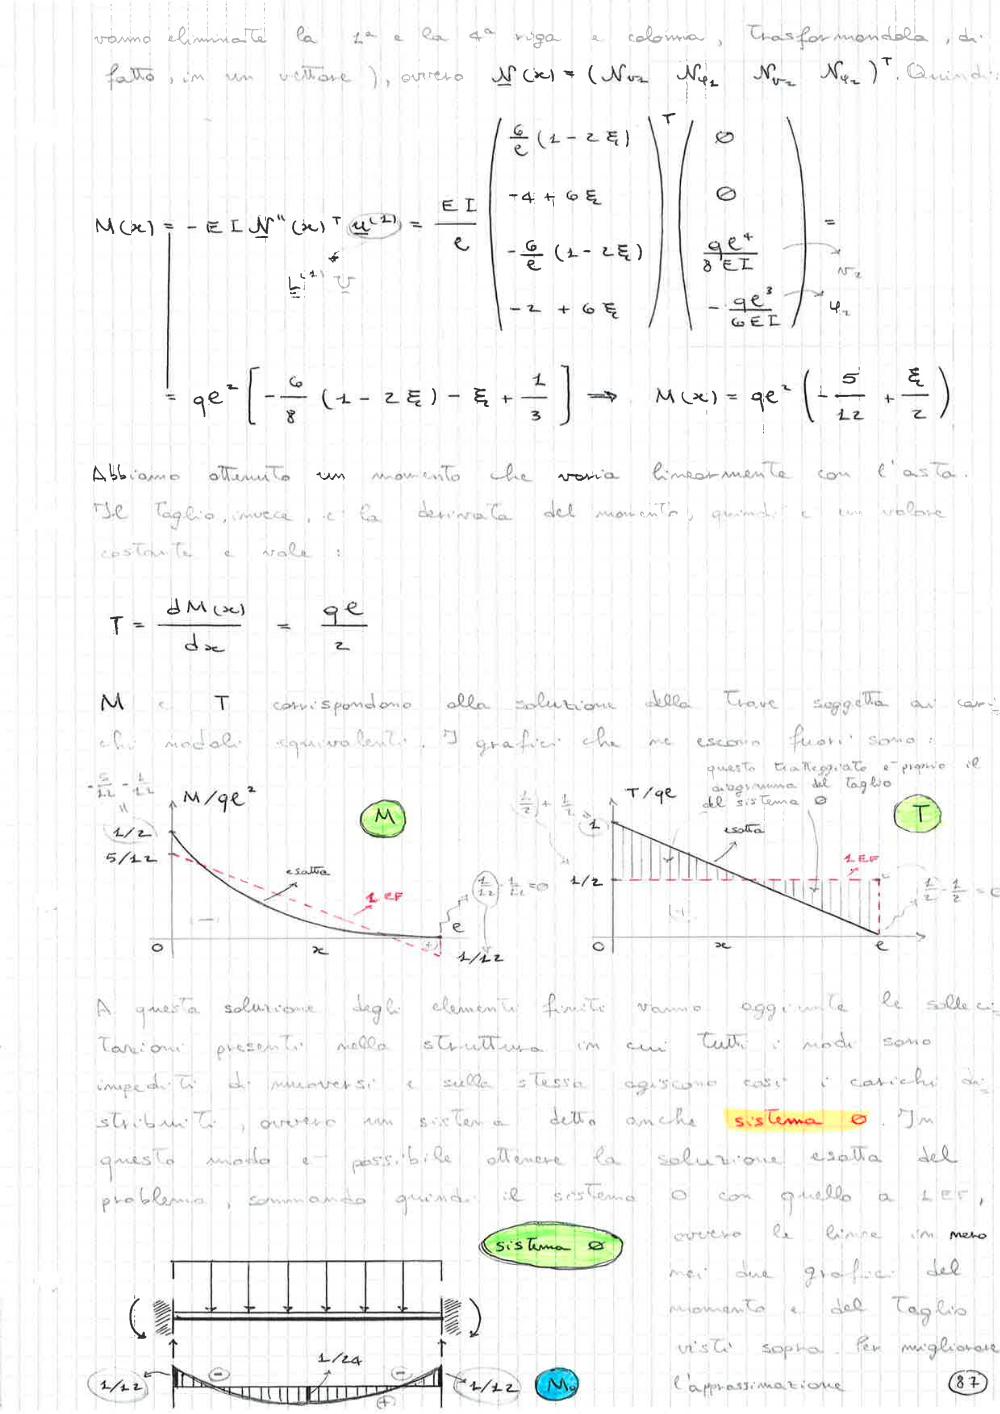 vanno eliminate la 1ª e la 4ª riga e colonna, trasformandola, di
fatto, in un vettore), ovvero N(x) = (Nv₂ Nφ₂ Nv₂ Nφ₂)ᵀ. Quindi:
M(x) = - E I N''(x)ᵀ u⁽¹⁾ = EI/ℓ ( 6/ℓ (1 - 2ξ) ; -4 + 6ξ ; -6/ℓ (1 - 2ξ) ; -2 + 6ξ )ᵀ ( ∅ ; ∅ ; qℓ⁴/8EI ; - qℓ³/6EI ) =
L⁽¹⁾ U
v₂
φ₂
= qℓ² [ - 6/8 (1 - 2ξ) - ξ + 1/3 ] ⇒ M(x) = qℓ² ( - 5/12 + ξ/2 )
Abbiamo ottenuto un momento che varia linearmente con l'asta.
Il taglio, invece, e' la derivata del momento, quindi e' un valore
costante e vale :
T = dM(x)/dx = qℓ/2
M e T corrispondono alla soluzione della trave soggetta ai cari-
chi nodali equivalenti. I grafici che ne escono fuori sono :
questo tratteggiato e' proprio il
diagramma del taglio
del sistema ∅
-5/12 - 1/12
M/qℓ²
M
1/2
5/12
esatta
1 EF
(-)
1/12 - 1/12 = 0
ℓ
(+)
0
x
1/12
1/2 + 1/2
T/qℓ
T
1
esatta
1 EF
1/2
(+)
1/2 - 1/2 = 0
0
x
ℓ
A questa soluzione degli elementi finiti vanno aggiunte le solleci-
tazioni presenti nella struttura in cui tutti i nodi sono
impediti di muoversi e sulla stessa agiscono così i carichi di-
stribuiti, ovvero un sistema detto anche sistema ∅. In
questo modo e' possibile ottenere la soluzione esatta del
problema, sommando quindi il sistema 0 con quello a 1 EF,
sistema ∅
ovvero le linee in nero
nei due grafici del
momento e del taglio
visti sopra. Per migliorare
l'approssimazione
1/12
(-)
1/24
(-)
1/12
(+)
M₀
87